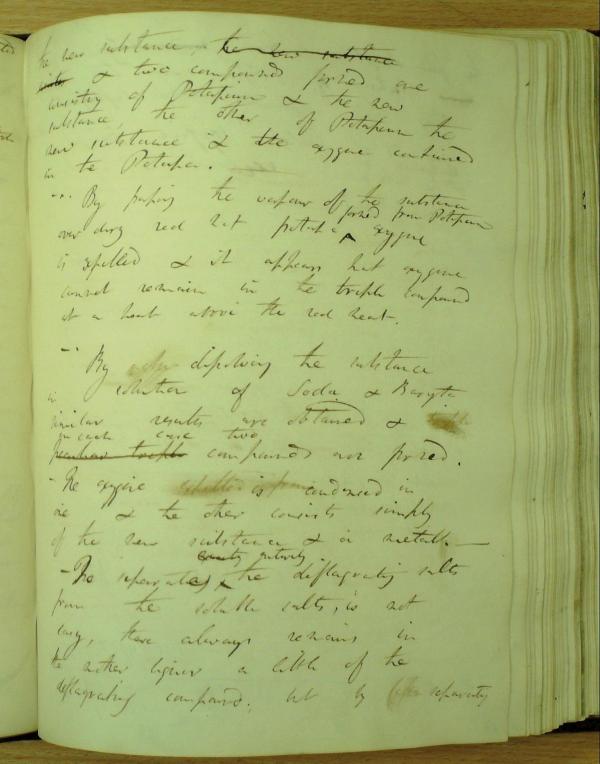 the new substance, the new substance
& two compounds formed one
consisting of Potassium & the new
substance the other of Potassium the
new substance & the oxygene contained
in the Potassa.
By passing the vapour of the substance
over dry red hot potassa oxygene
formed from Potassium
is expelled & it appears that oxygene
cannot remain in the triple compound
at a heat above the red heat.
By dissolving the substance
in solution of Soda & Baryta
similar results are obtained &
in each case two
peculiar triple compounds are formed.
- The oxygene is condensed in
one & the other consists simply
of the new substance & a metal. —
entirely
- To separate the deflagrating salts
from the soluble salts, is not
easy, there always remains in
the mother liquor a little of the
deflagrating compound; but by separating